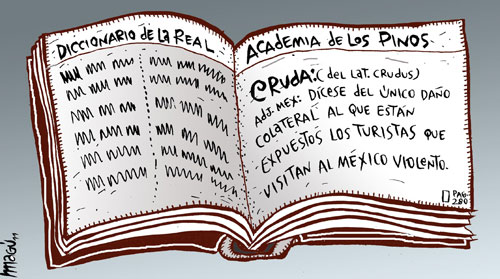 DICCIONARIO DE LA REAL
ACADEMIA DE LOS PINOS
CRUDA: (DEL LAT. CRUDUS)
ADJ. MEX: DÍCESE DEL ÚNICO DAÑO
COLATERAL AL QUE ESTÁN
EXPUESTOS LOS TURISTAS QUE
VISITAN AL MÉXICO VIOLENTO.
PAG.
280
MAGÚ